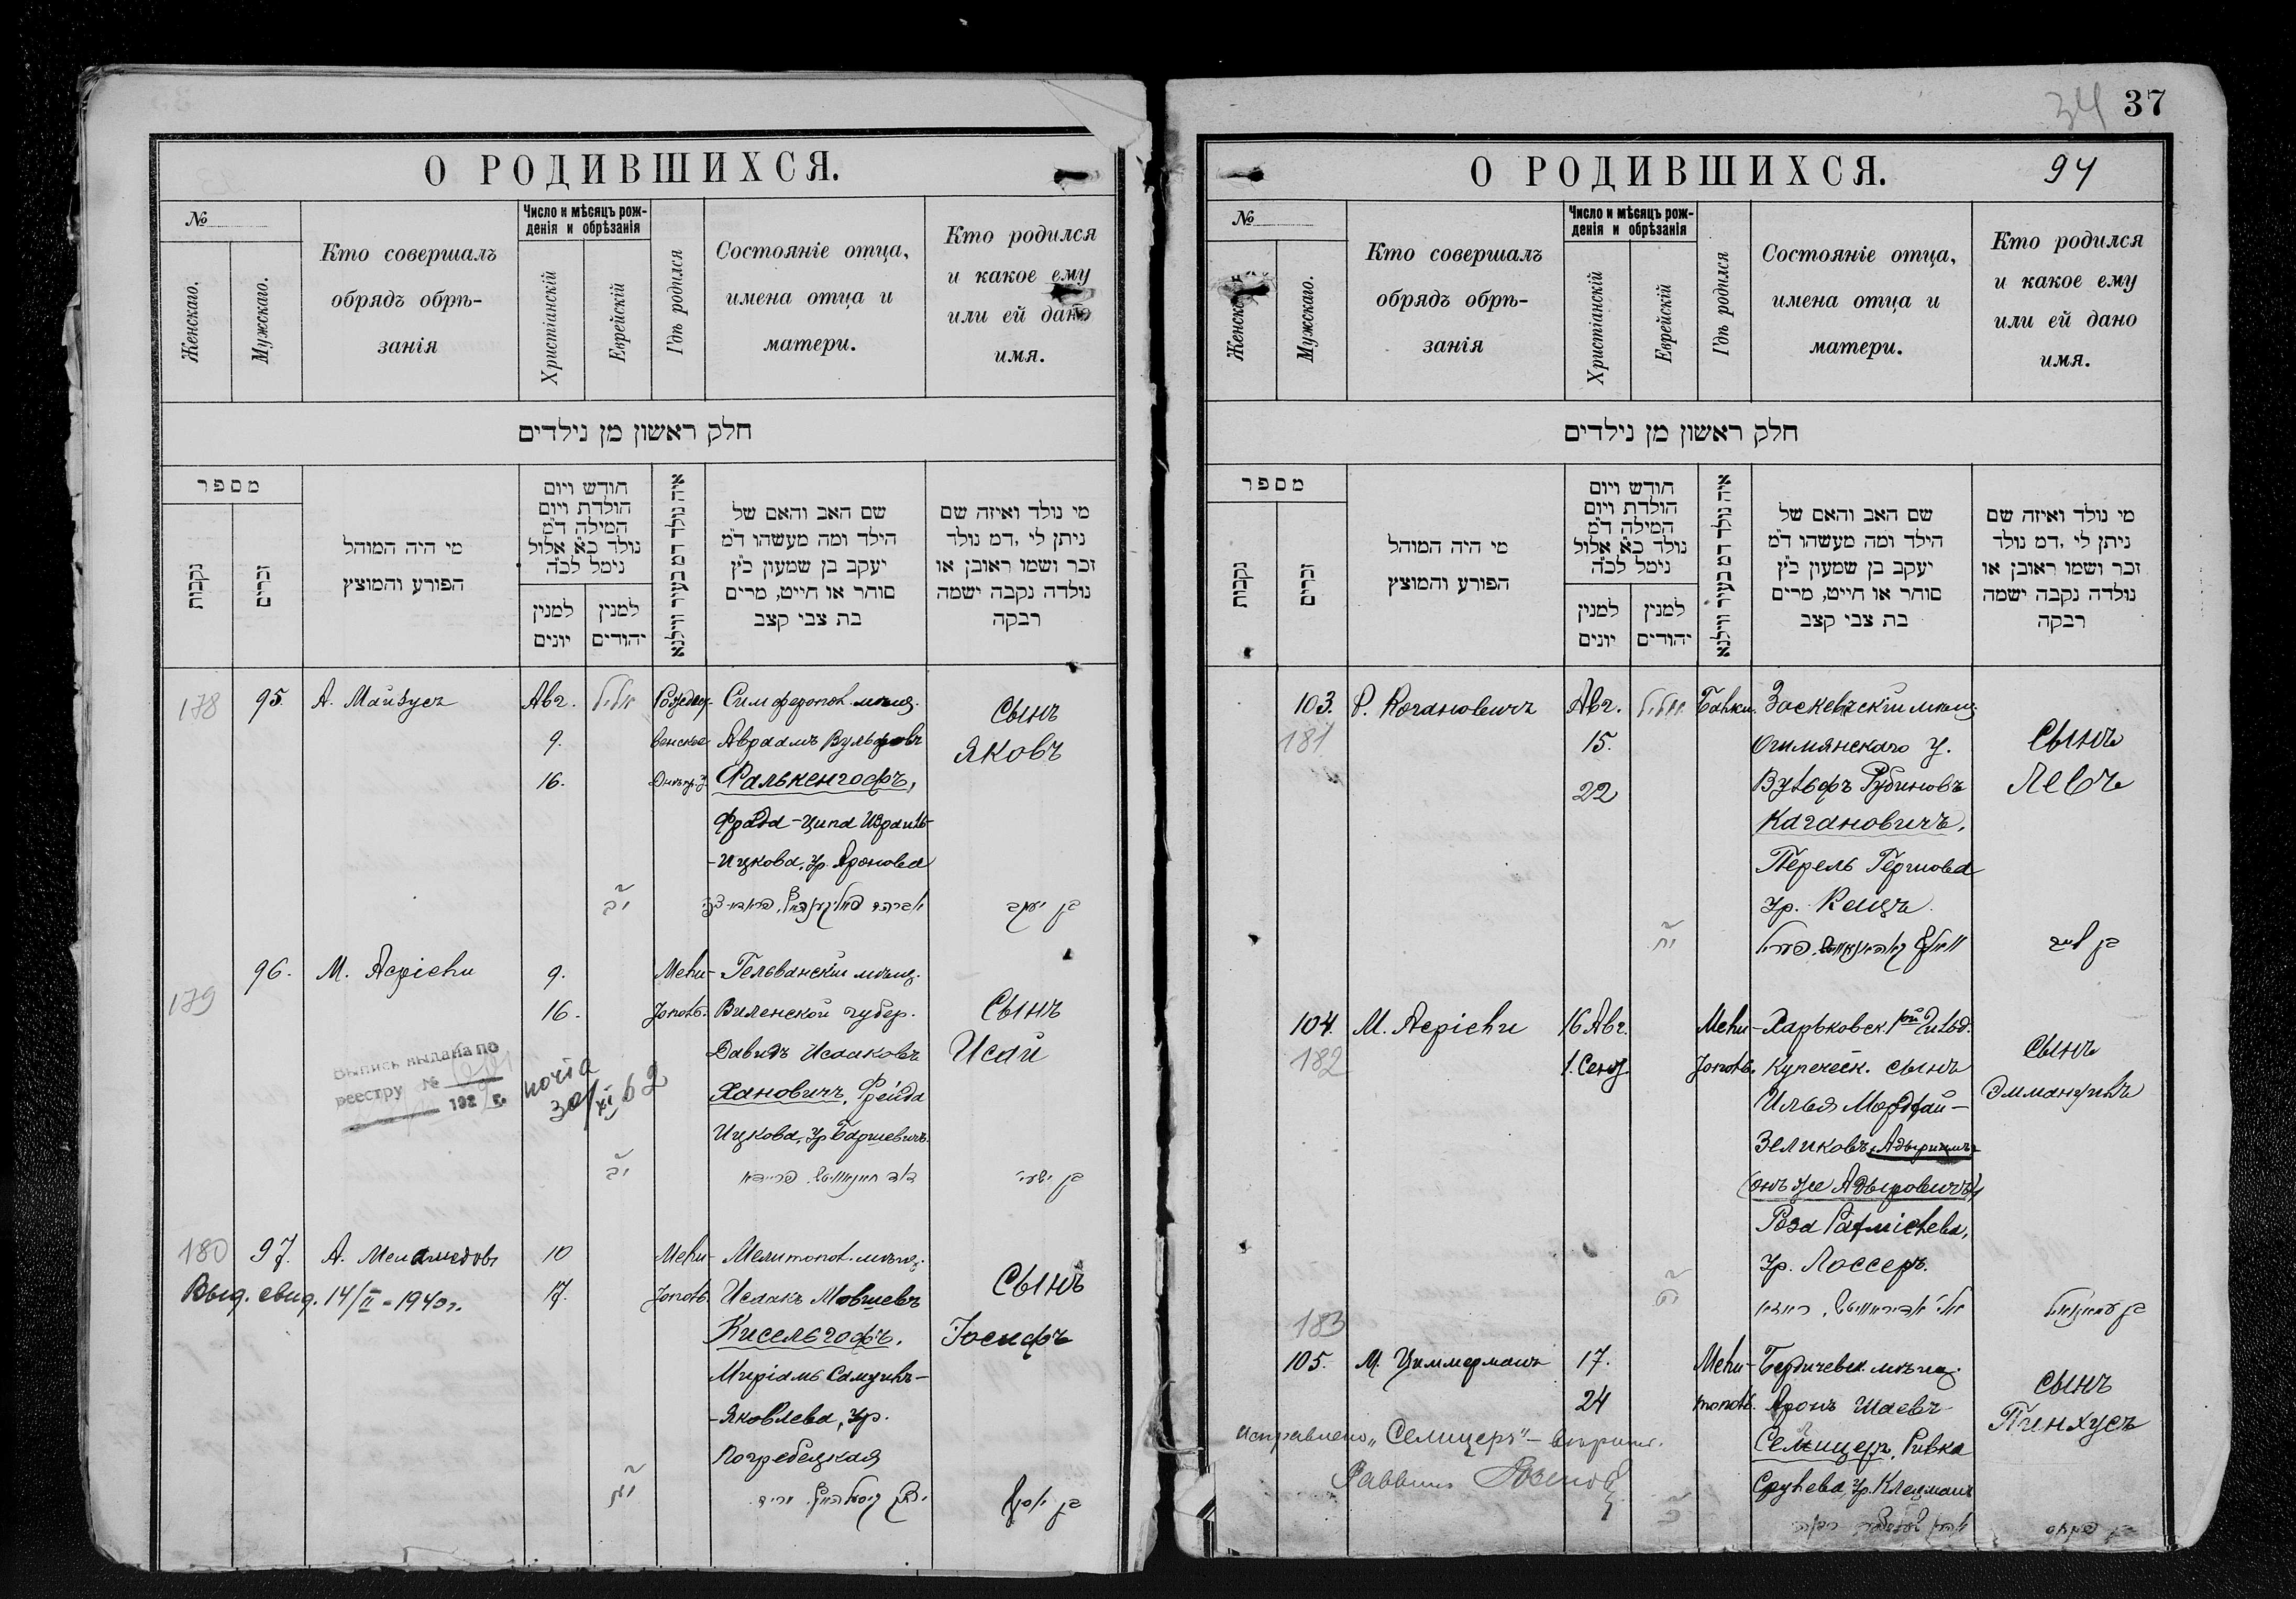 О РОДИВШИХСЯ.
№
Женскаго.
Мужскаго.
Кто совершалъ
обрядъ обрѣ-
занія
Число и мѣсяцъ рож-
денія и обрѣзанія
Христіанскій
Еврейскій
Гдѣ родился
Состояніе отца,
имена отца и
матери.
Кто родился
и какое ему
или ей дано
имя.
חלק ראשון מן נילדים
מספר
נקבות
זכרים
מי היה המוהל
הפורע והמוצץ
חודש ויום
הולדת ויום
המילה ד״מ
נולד כ״א אלול
נימל לכ״ה
למנין
יונים
למנין
יהודים
איה נולד דמ בעיר ווילנא
שם האב והאם של
הילד ומה מעשהו ד״מ
יעקב בן שמעון כ״ץ
סוחר או חייט, מרים
בת צבי קצב
מי נולד ואיזה שם
ניתן לי ,דמ נולד
זכר ושמו ראובן או
נולדה נקבה ישמה
רבקה
178
95.
А. Майзусъ
Авг.
אלול
9.
16.
Симферопол. мѣщ.
Авраамъ Вульфовъ
Фалькенгофъ,
Фрада-Ципа Израиль-
-Ицкова, ур. Аронова
Сынъ
Яковъ
י״ב
בן יעקב
179
96.
М. Асріели
9.
16.
Мели-
тополь.
Гельванскій мѣщ.
Виленской губер.
Давидъ Исааковъ
Хановичъ, Фрейда
Ицкова, ур. Баршевичъ
Сынъ
Исай
Выпись выдана по
реестру №
192 г.
י״ב
בן ישעי׳
180
97.
А. Меламедовъ
10
17.
Мели-
тополь.
Выд. свид. 14/II-1940г.
Мелитопол. мѣщ.
Исаакъ Мовшевъ
Кисельгофъ,
Миріамъ Самуилъ-
-Яковлева, ур.
Погребецкая
Сынъ
Іосифъ
י״ג
יצחק קיסעלהאף, מרים
בן יוסף
34
37
О РОДИВШИХСЯ.
94
№
Женскаго
Мужскаго.
Кто совершалъ
обрядъ обрѣ-
занія
Число и мѣсяцъ рож-
денія и обрѣзанія
Христіанскій
Еврейскій
Гдѣ родился
Состояніе отца,
имена отца и
матери.
Кто родился
и какое ему
или ей дано
имя.
חלק ראשון מן נילדים
מספר
נקבות
זכרים
מי היה המוהל
הפורע והמוצץ
חודש ויום
הולדת ויום
המילה ד״מ
נולד כ״א אלול
נימל לכ״ה
למנין
יונים
למנין
יהודים
איה נולד דמ בעיר ווילנא
שם האב והאם של
הילד ומה מעשהו ד״מ
יעקב בן שמעון כ״ץ
סוחר או חייט, מרים
בת צבי קצב
מי נולד ואיזה שם
ניתן לי ,דמ נולד
זכר ושמו ראובן או
נולדה נקבה ישמה
רבקה
103.
181
Р. Кагановичъ
Авг.
אלול
15.
22
Банки.
Заскевскій мѣщ.
Ошмянскаго у.
Вульфъ Рубиновъ
Кагановичъ,
Перель Гершова
ур. Кацъ
Сынъ
Левъ
י״ח
104.
182
М. Асріели
16 Авг.
1. Сент.
Мели-
тополь.
Харьковск. 1ой Гильд.
Купеческ. сынъ
Илья Мордхай-
Зеликовъ Адыримъ
(онъ же Адыровичъ),
Роза Рафаилева,
ур. Лоссеръ.
Сынъ
Эммануилъ
י״ט
בן עמנואל
183
105.
М. Циммерманъ
17.
24
Мели-
тополь.
Бердичевск. мѣщ.
Аронъ Шаевъ
Селицеръ, Ривка
Срулева, ур. Клецманъ
Сынъ
Пинхусъ
Исправлено „Селицеръ" – вѣрно.
Раввинъ
כ׳
בן פנחס